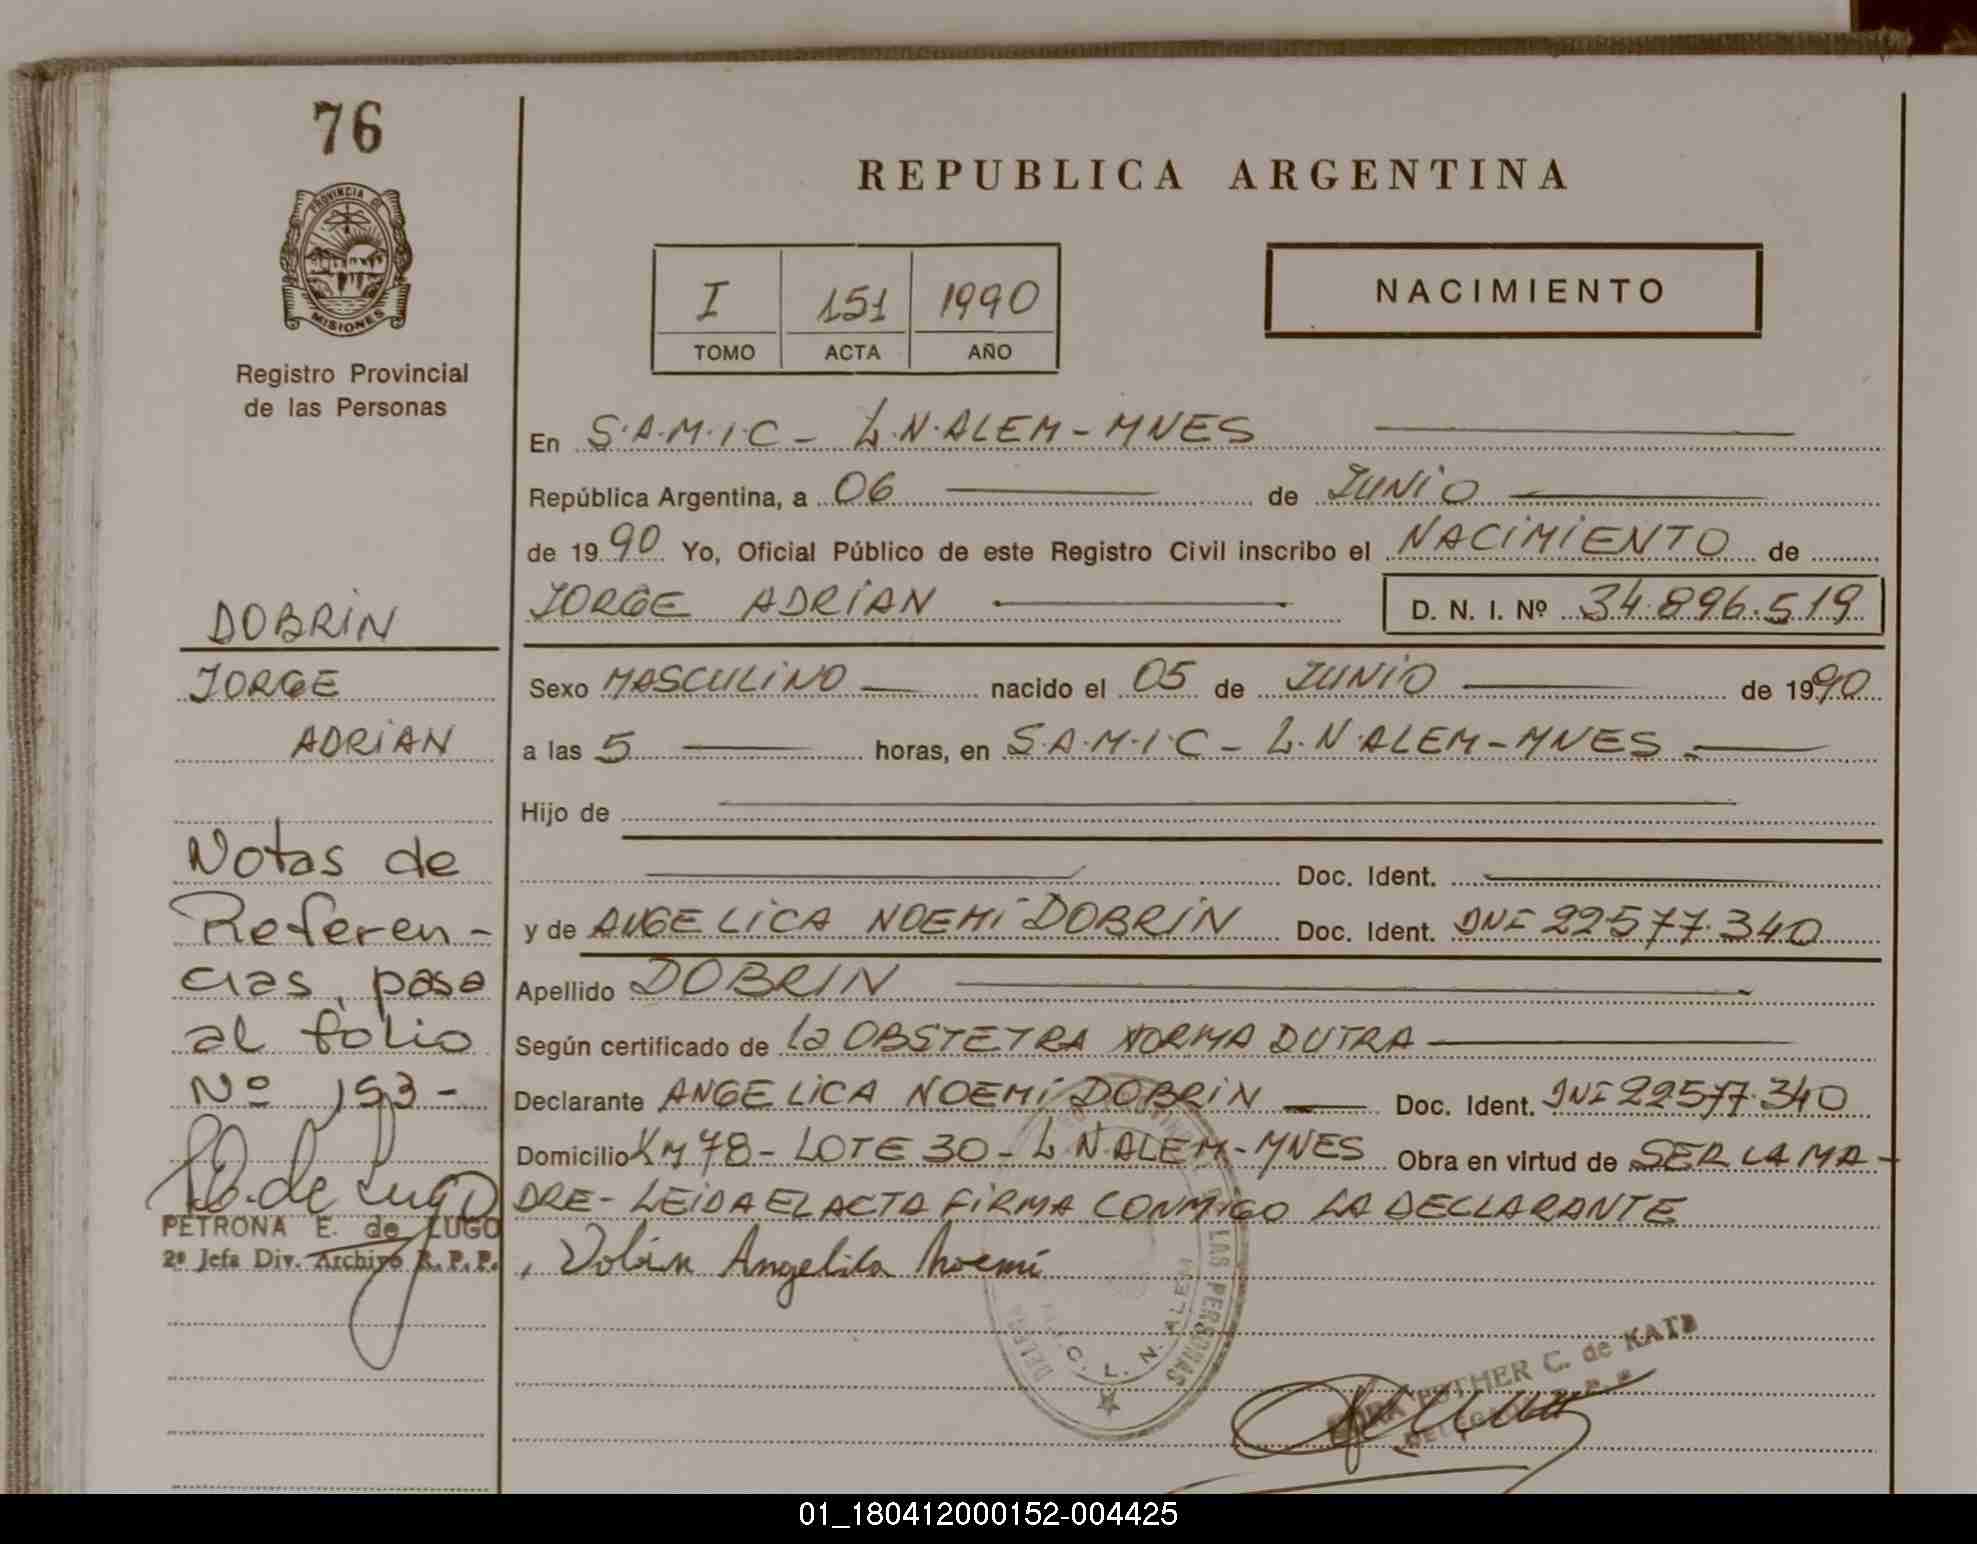 76
REPUBLICA ARGENTINA
PROVINCIA DE
MISIONES
Registro Provincial
de las Personas
I 151 1990
TOMO ACTA AÑO
NACIMIENTO
En S.A.M.I.C - L.N.ALEM - MNES
República Argentina, a 06 de JUNIO
de 1990 Yo, Oficial Público de este Registro Civil inscribo el NACIMIENTO de
JORGE ADRIAN D. N. I. Nº 34.896.519
Sexo MASCULINO nacido el 05 de JUNIO de 1990
a las 5 horas, en S.A.M.I.C - L.N.ALEM - MNES -
Hijo de
Doc. Ident.
y de ANGELICA NOEMI DOBRIN Doc. Ident. DNI 22577.340
Apellido DOBRIN
Según certificado de la OBSTETRA NORMA DUTRA
Declarante ANGELICA NOEMI DOBRIN Doc. Ident. DNI 22577.340
Domicilio KM 78 - LOTE 30 - L N ALEM - MNES Obra en virtud de SER LA MA -
DRE - LEIDA EL ACTA FIRMA CONMIGO LA DECLARANTE
Dobrin Angelica Noemi
DOBRIN
JORGE
ADRIAN
Notas de
Referen -
cias, pasa
al folio
Nº 153 -
PETRONA E. de LUGO
2ª Jefa Div. Archivo R.P.P.
LAS PERSONAS
L. N. ALEM
C. de KATZ
01_180412000152-004425